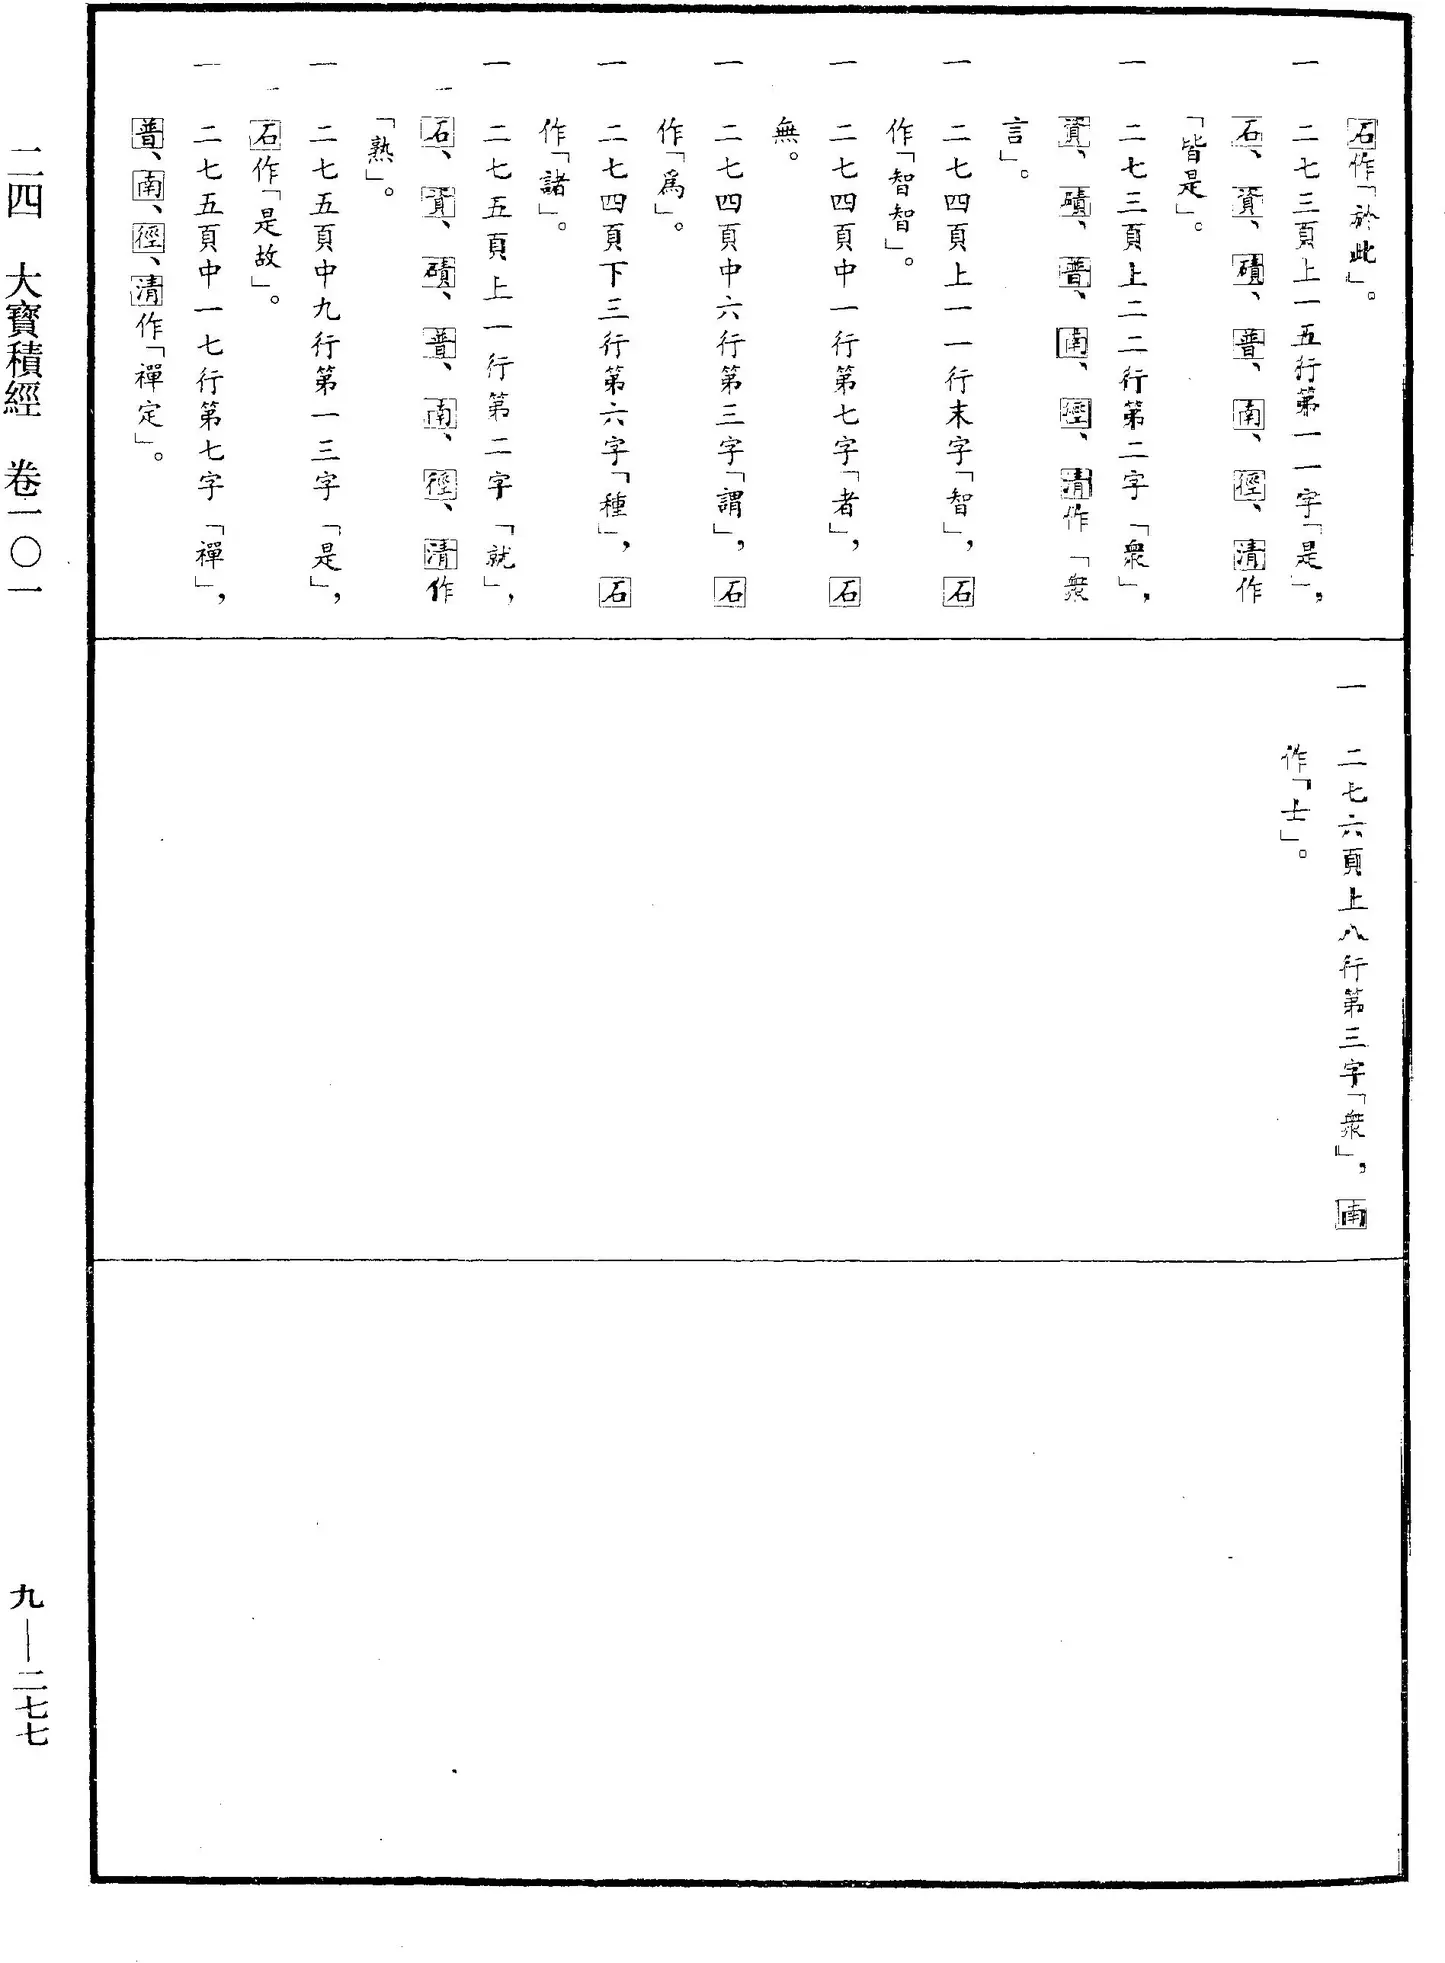 石作「於此」。
一 二七三頁上一五行第一一字「是」，
石、資、磧、普、南、徑、清作
「皆是」。
一 二七三頁上二二行第二字「衆」，
資、磧、普、南、徑、清作「衆
言」。
一 二七四頁上一一行末字「智」，石
作「智智」。
一 二七四頁中一行第七字「者」，石
無。
一 二七四頁中六行第三字「謂」，石
作「爲」。
一 二七四頁下三行第六字「種」，石
作「諸」。
一 二七五頁上一行第二字「就」，
石、資、磧、普、南、徑、清作
「熟」。
一 二七五頁中九行第一三字「是」，
石作「是故」。
一 二七五頁中一七行第七字「禪」，
普、南、徑、清作「禪定」。
一 二七六頁上八行第三字「衆」，南
作「士」。
二四 大寶積經 卷一〇一
九——二七七